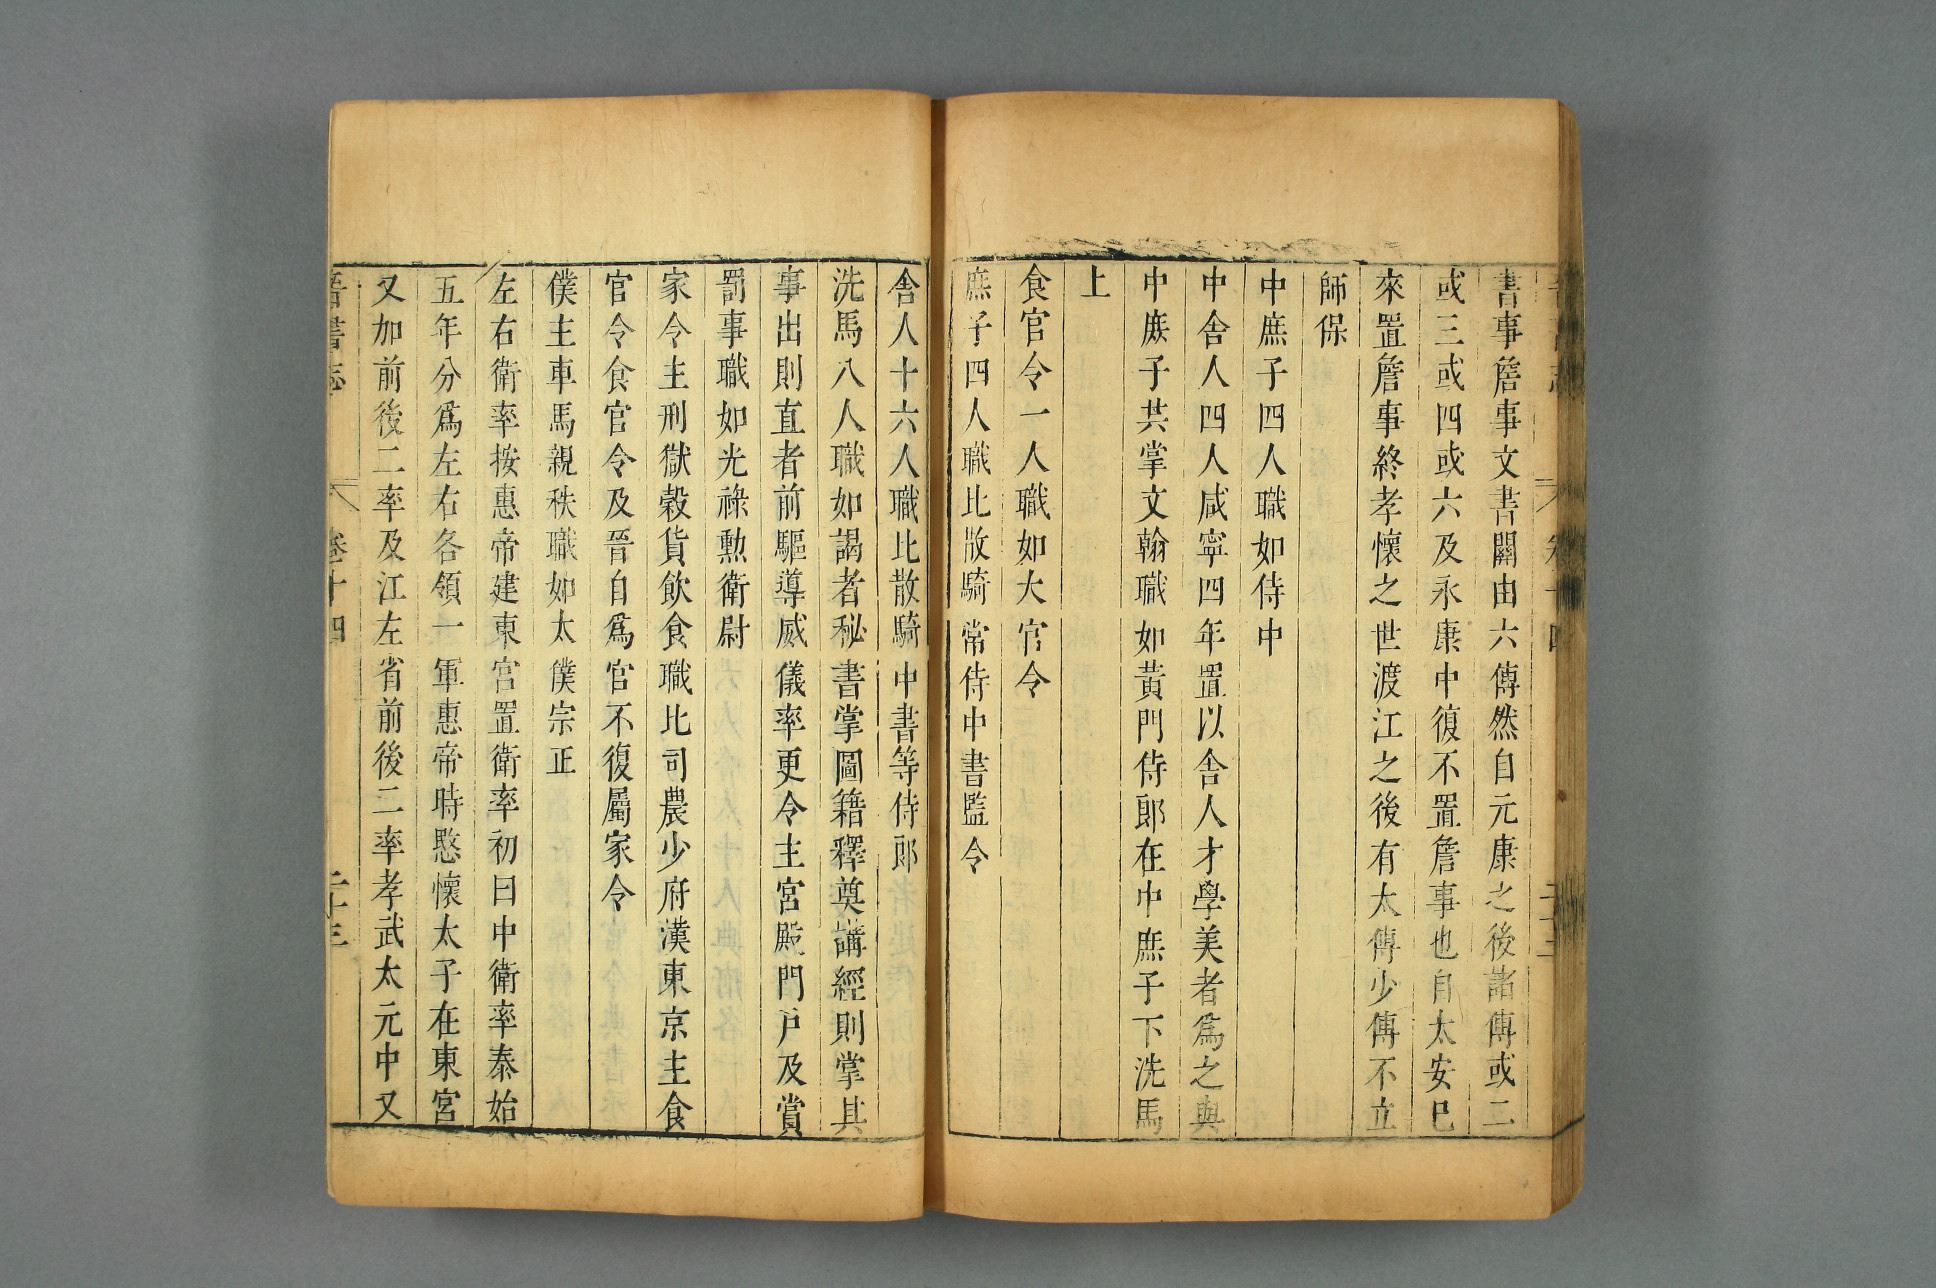 書事詹事文書關由六傅然自元康之後諸傅或二
或三或四或六及永康中復不置詹事也自太安巳
來置詹事終孝懷之世渡江之後有太傅少傅不立
師保
中庶子四人職如侍中
中舍人四人咸寧四年置以舍人才學美者爲之與
中庶子共掌文翰職如黃門侍郎在中庶子下洗馬
上
食官令一人職如太官令
庶子四人職比散騎常侍中書監令
舍人十六人職比散騎中書等侍郎
洗馬八人職如謁者秘書掌圖籍釋奠講經則掌其
事出則直者前驅導威儀率更令主宮殿門戶及賞
罰事職如光祿勲衛尉
家令主刑獄穀貨飲食職比司農少府漢東京主食
官令食官令及晉自爲官不復屬家令
僕主車馬親秩職如太僕宗正
左右衛率按惠帝建東宮置衛率初曰中衛率泰始
五年分爲左右各領一軍惠帝時愍懷太子在東宮
又加前後二率及江左省前後二率孝武太元中又
晉書志 卷十四 二十三